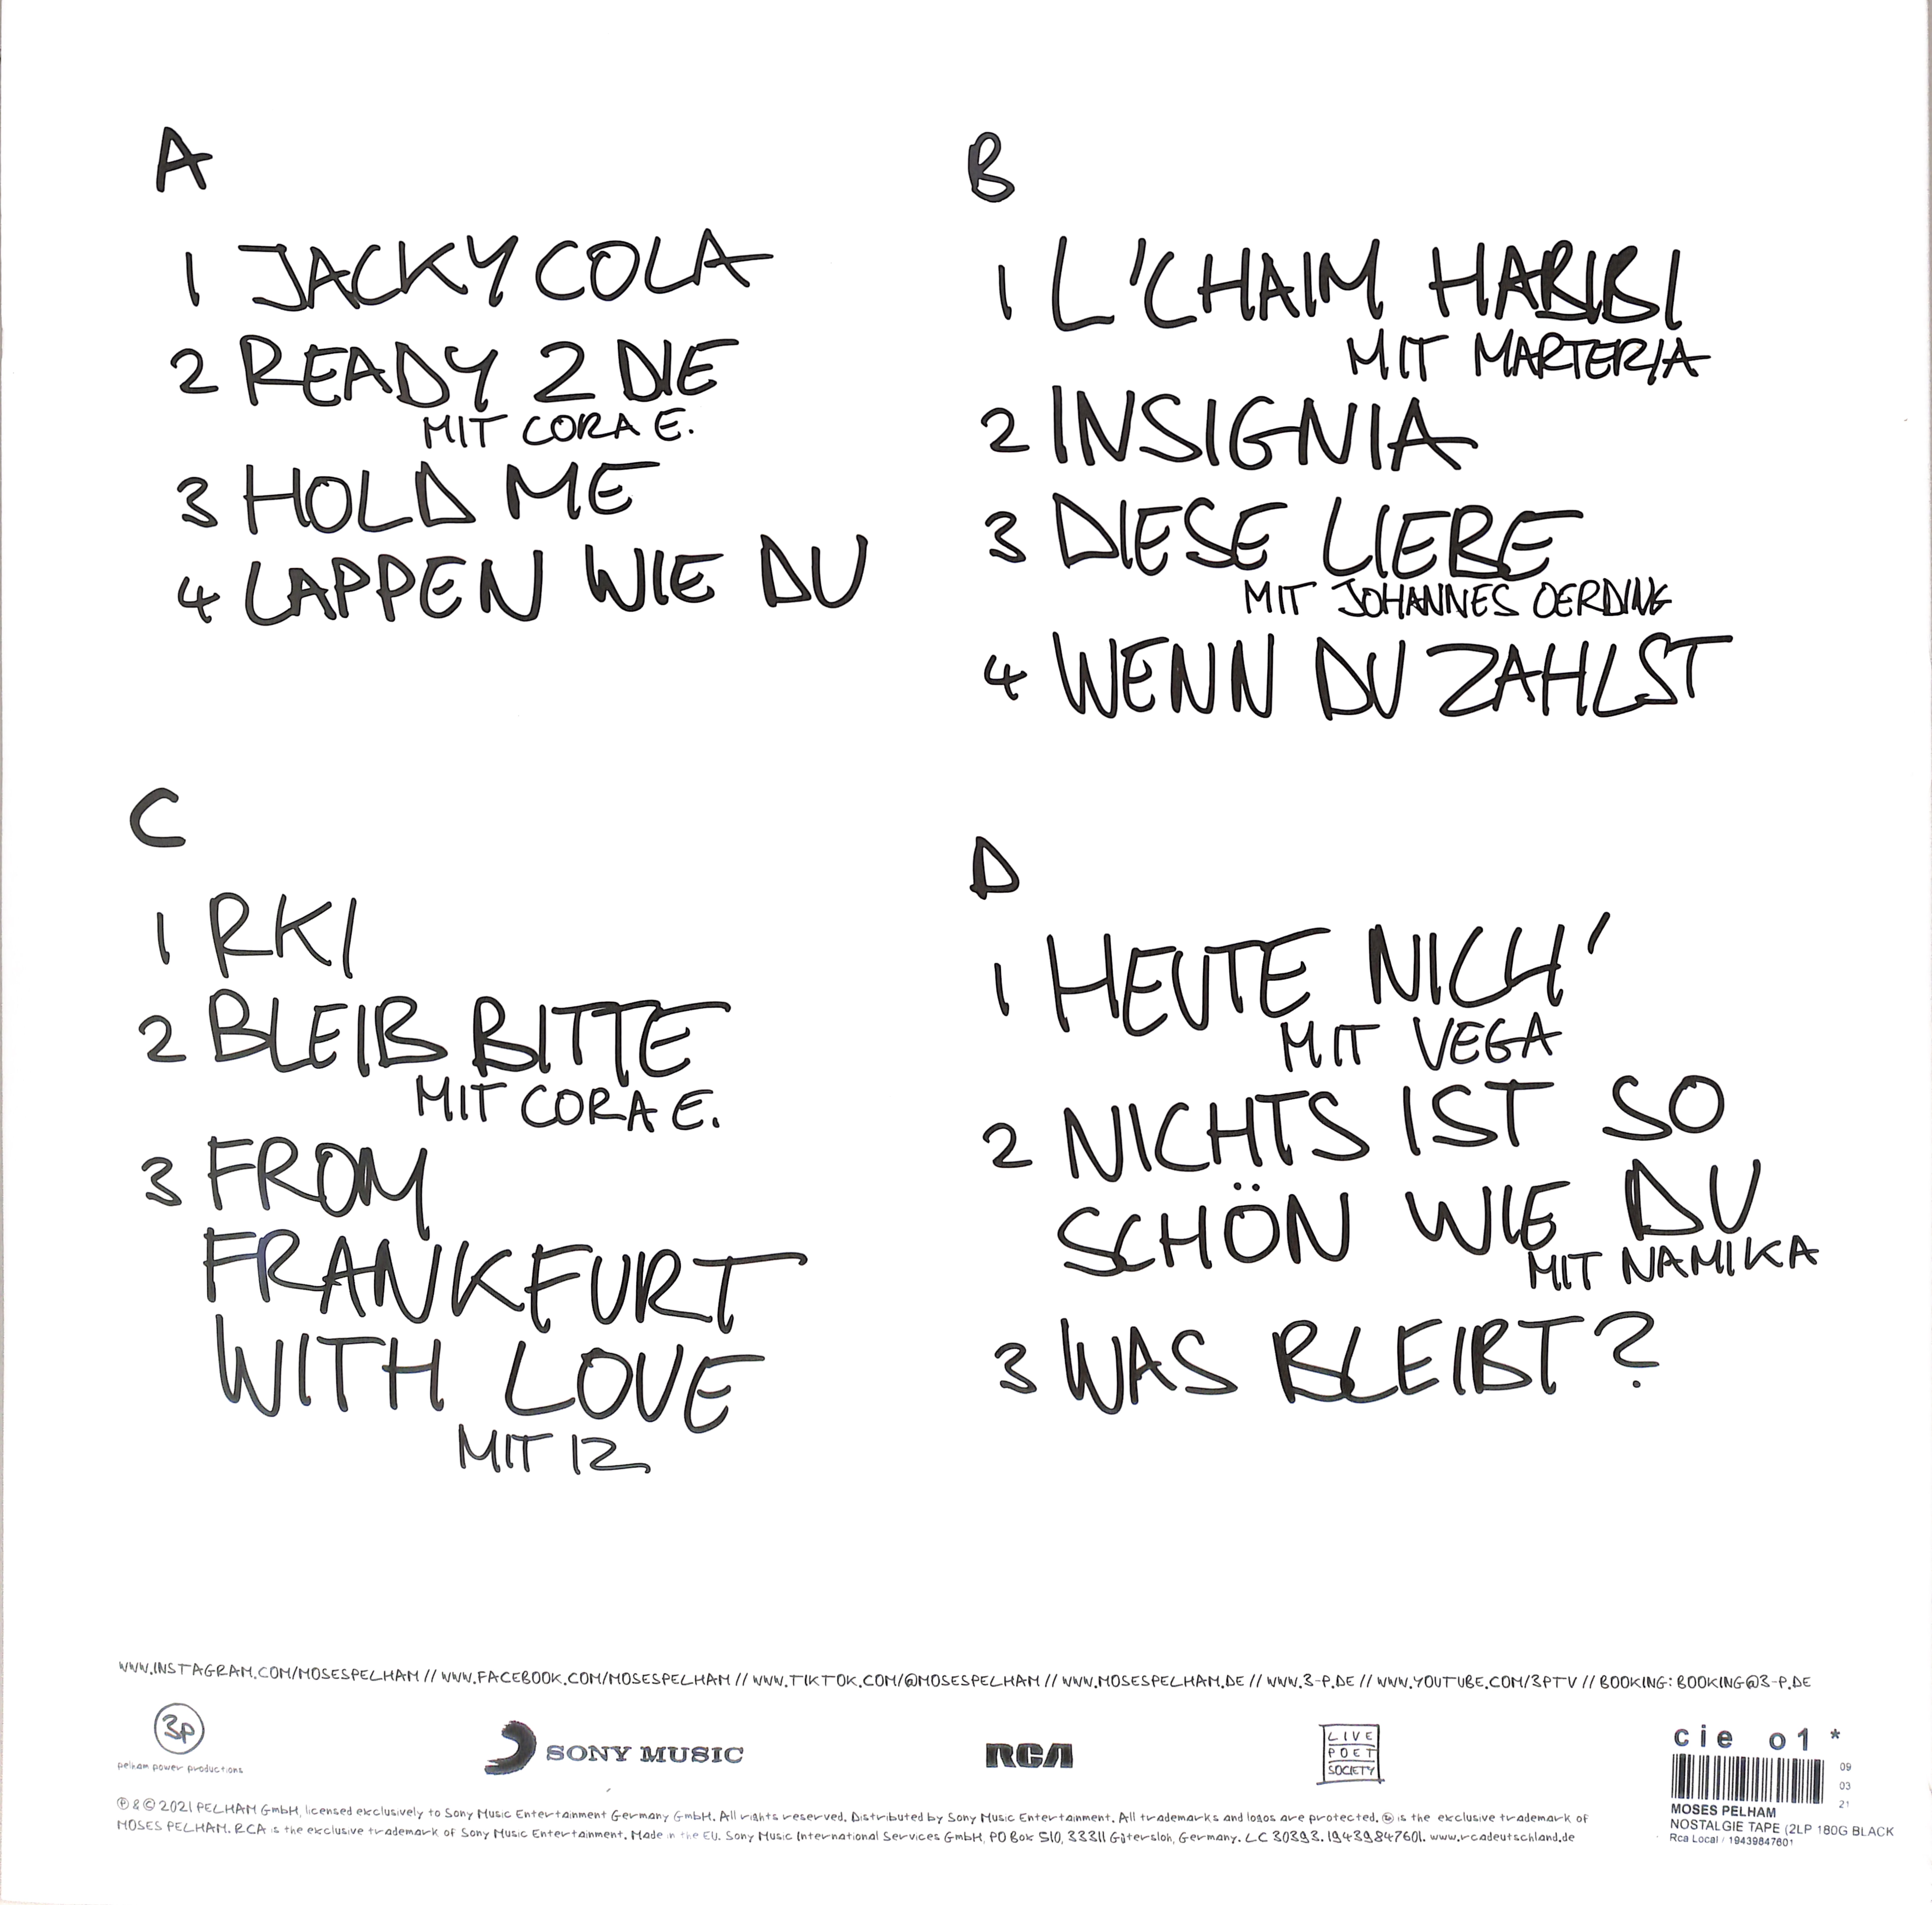 A
1 JACKY COLA
2 READY 2 DIE
MIT CORA E.
3 HOLD ME
4 LAPPEN WIE DU
B
1 L'CHAIM HABIBI
MIT MARTERIA
2 INSIGNIA
3 DIESE LIEBE
MIT JOHANNES OERDING
4 WENN DU ZAHLST
C
1 RKI
2 BLEIB BITTE
MIT CORA E.
3 FROM
FRANKFURT
WITH LOVE
MIT IZ
D
1 HEUTE NICH'
MIT VEGA
2 NICHTS IST SO
SCHÖN WIE DU
MIT NAMIKA
3 WAS BLEIBT?
WWW.INSTAGRAM.COM/MOSESPELHAM // WWW.FACEBOOK.COM/MOSESPELHAM // WWW.TIKTOK.COM/@MOSESPELHAM // WWW.MOSESPELHAM.DE // WWW.3-P.DE // WWW.YOUTUBE.COM/3PTV // BOOKING: BOOKING@3-P.DE
3P
pelham power productions
SONY MUSIC
RCA
LIVE
POET
SOCIETY
cie o1 *
09
03
21
MOSES PELHAM
NOSTALGIE TAPE (2LP 180G BLACK
Rca Local / 19439847601
℗ & © 2021 PELHAM GmbH, licensed exclusively to Sony Music Entertainment Germany GmbH. All rights reserved. Distributed by Sony Music Entertainment. All trademarks and logos are protected. 3p is the exclusive trademark of
MOSES PELHAM. RCA is the exclusive trademark of Sony Music Entertainment. Made in the EU. Sony Music International Services GmbH, PO Box 510, 33311 Gütersloh, Germany. LC 30393. 19439847601. www.rcadeutschland.de